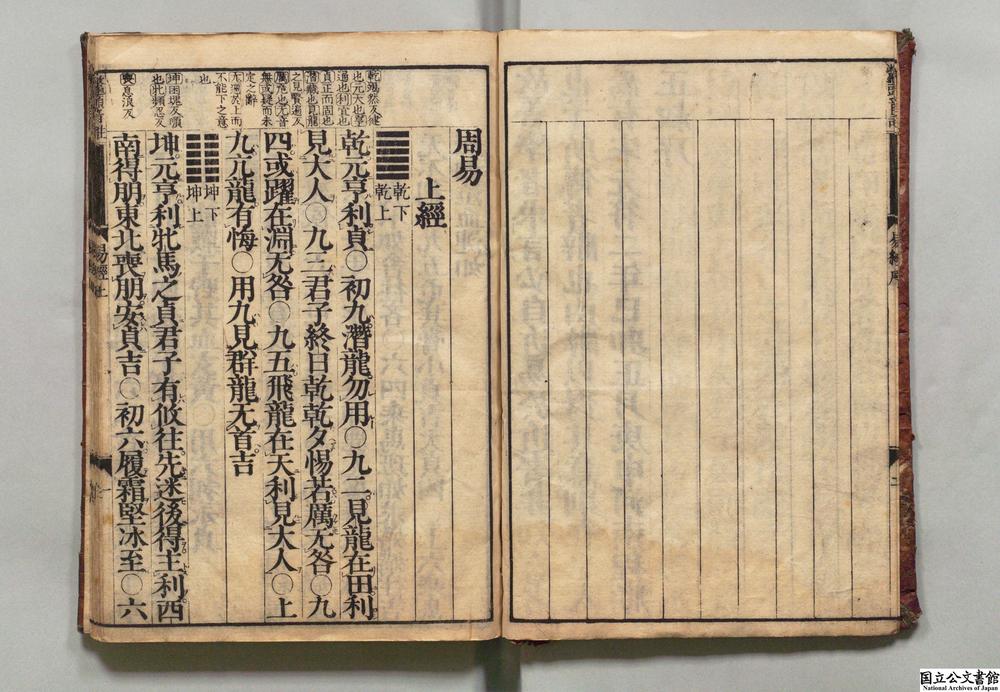 周易
上經
乾下
乾上
乾元亨利貞○初九潛龍勿用○九二見龍在田利
見大人○九三君子終日乾乾夕惕若厲无咎○九
四或躍在淵无咎○九五飛龍在天利見大人○上
九亢龍有悔○用九見群龍无首吉
坤下
坤上
坤元亨利牝馬之貞君子有攸往先迷後得主利西
南得朋東北喪朋安貞吉○初六履霜堅冰至○六
乾渴然反健
也元大也亨
通也利宜也
貞正而固也
潛藏也見龍
之見賢遍反
厲危也无音
無或疑而未
定之辭
亢過於上而
不能下之意
也
坤困塊反順
也牝頻忍反
喪息浪反
易經上
國立公文書館
National Archives of Japan